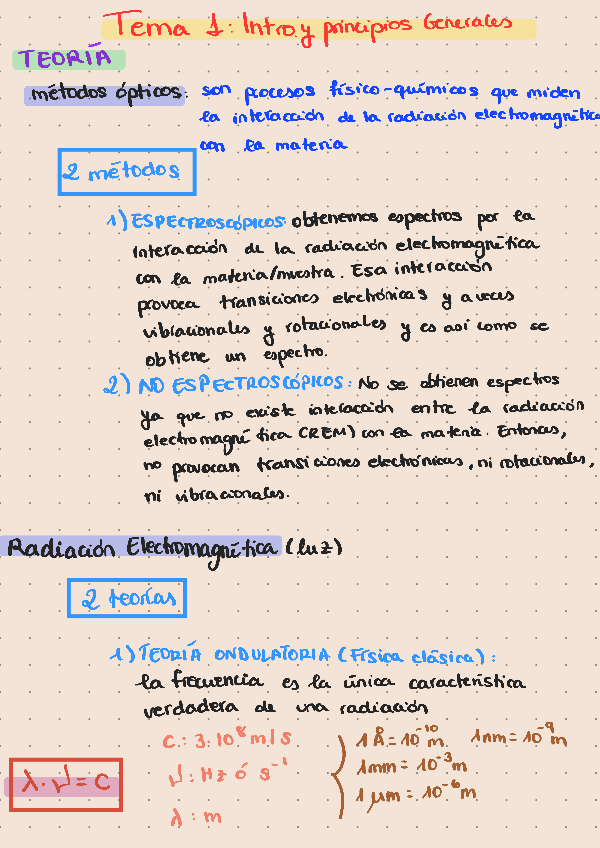 Tema 1: Intro y principios Generales
TEORÍA
métodos ópticos: son procesos físico-químicos que miden
la interacción de la radiación electromagnética
con la materia
2 métodos
1) ESPECTROSCÓPICOS: obtenemos espectros por la
interacción de la radiación electromagnética
con la materia/muestra. Esa interacción
provoca transiciones electrónicas y a veces
vibracionales y rotacionales y es así como se
obtiene un espectro.
2) NO ESPECTROSCÓPICOS: No se obtienen espectros
ya que no existe interacción entre la radiación
electromagnética (REM) con la materia. Entonces,
no provocan transiciones electrónicas, ni rotacionales,
ni vibracionales.
Radiación Electromagnética (luz)
2 teorías
1) TEORÍA ONDULATORIA (Física clásica):
la frecuencia es la única característica
verdadera de una radiación
c: 3·10⁸ m/s
1 Å = 10⁻¹⁰ m. 1nm = 10⁻⁹ m
λ·ν = c
ν: Hz ó s⁻¹
1mm = 10⁻³ m
1 μm = 10⁻⁶ m
λ: m